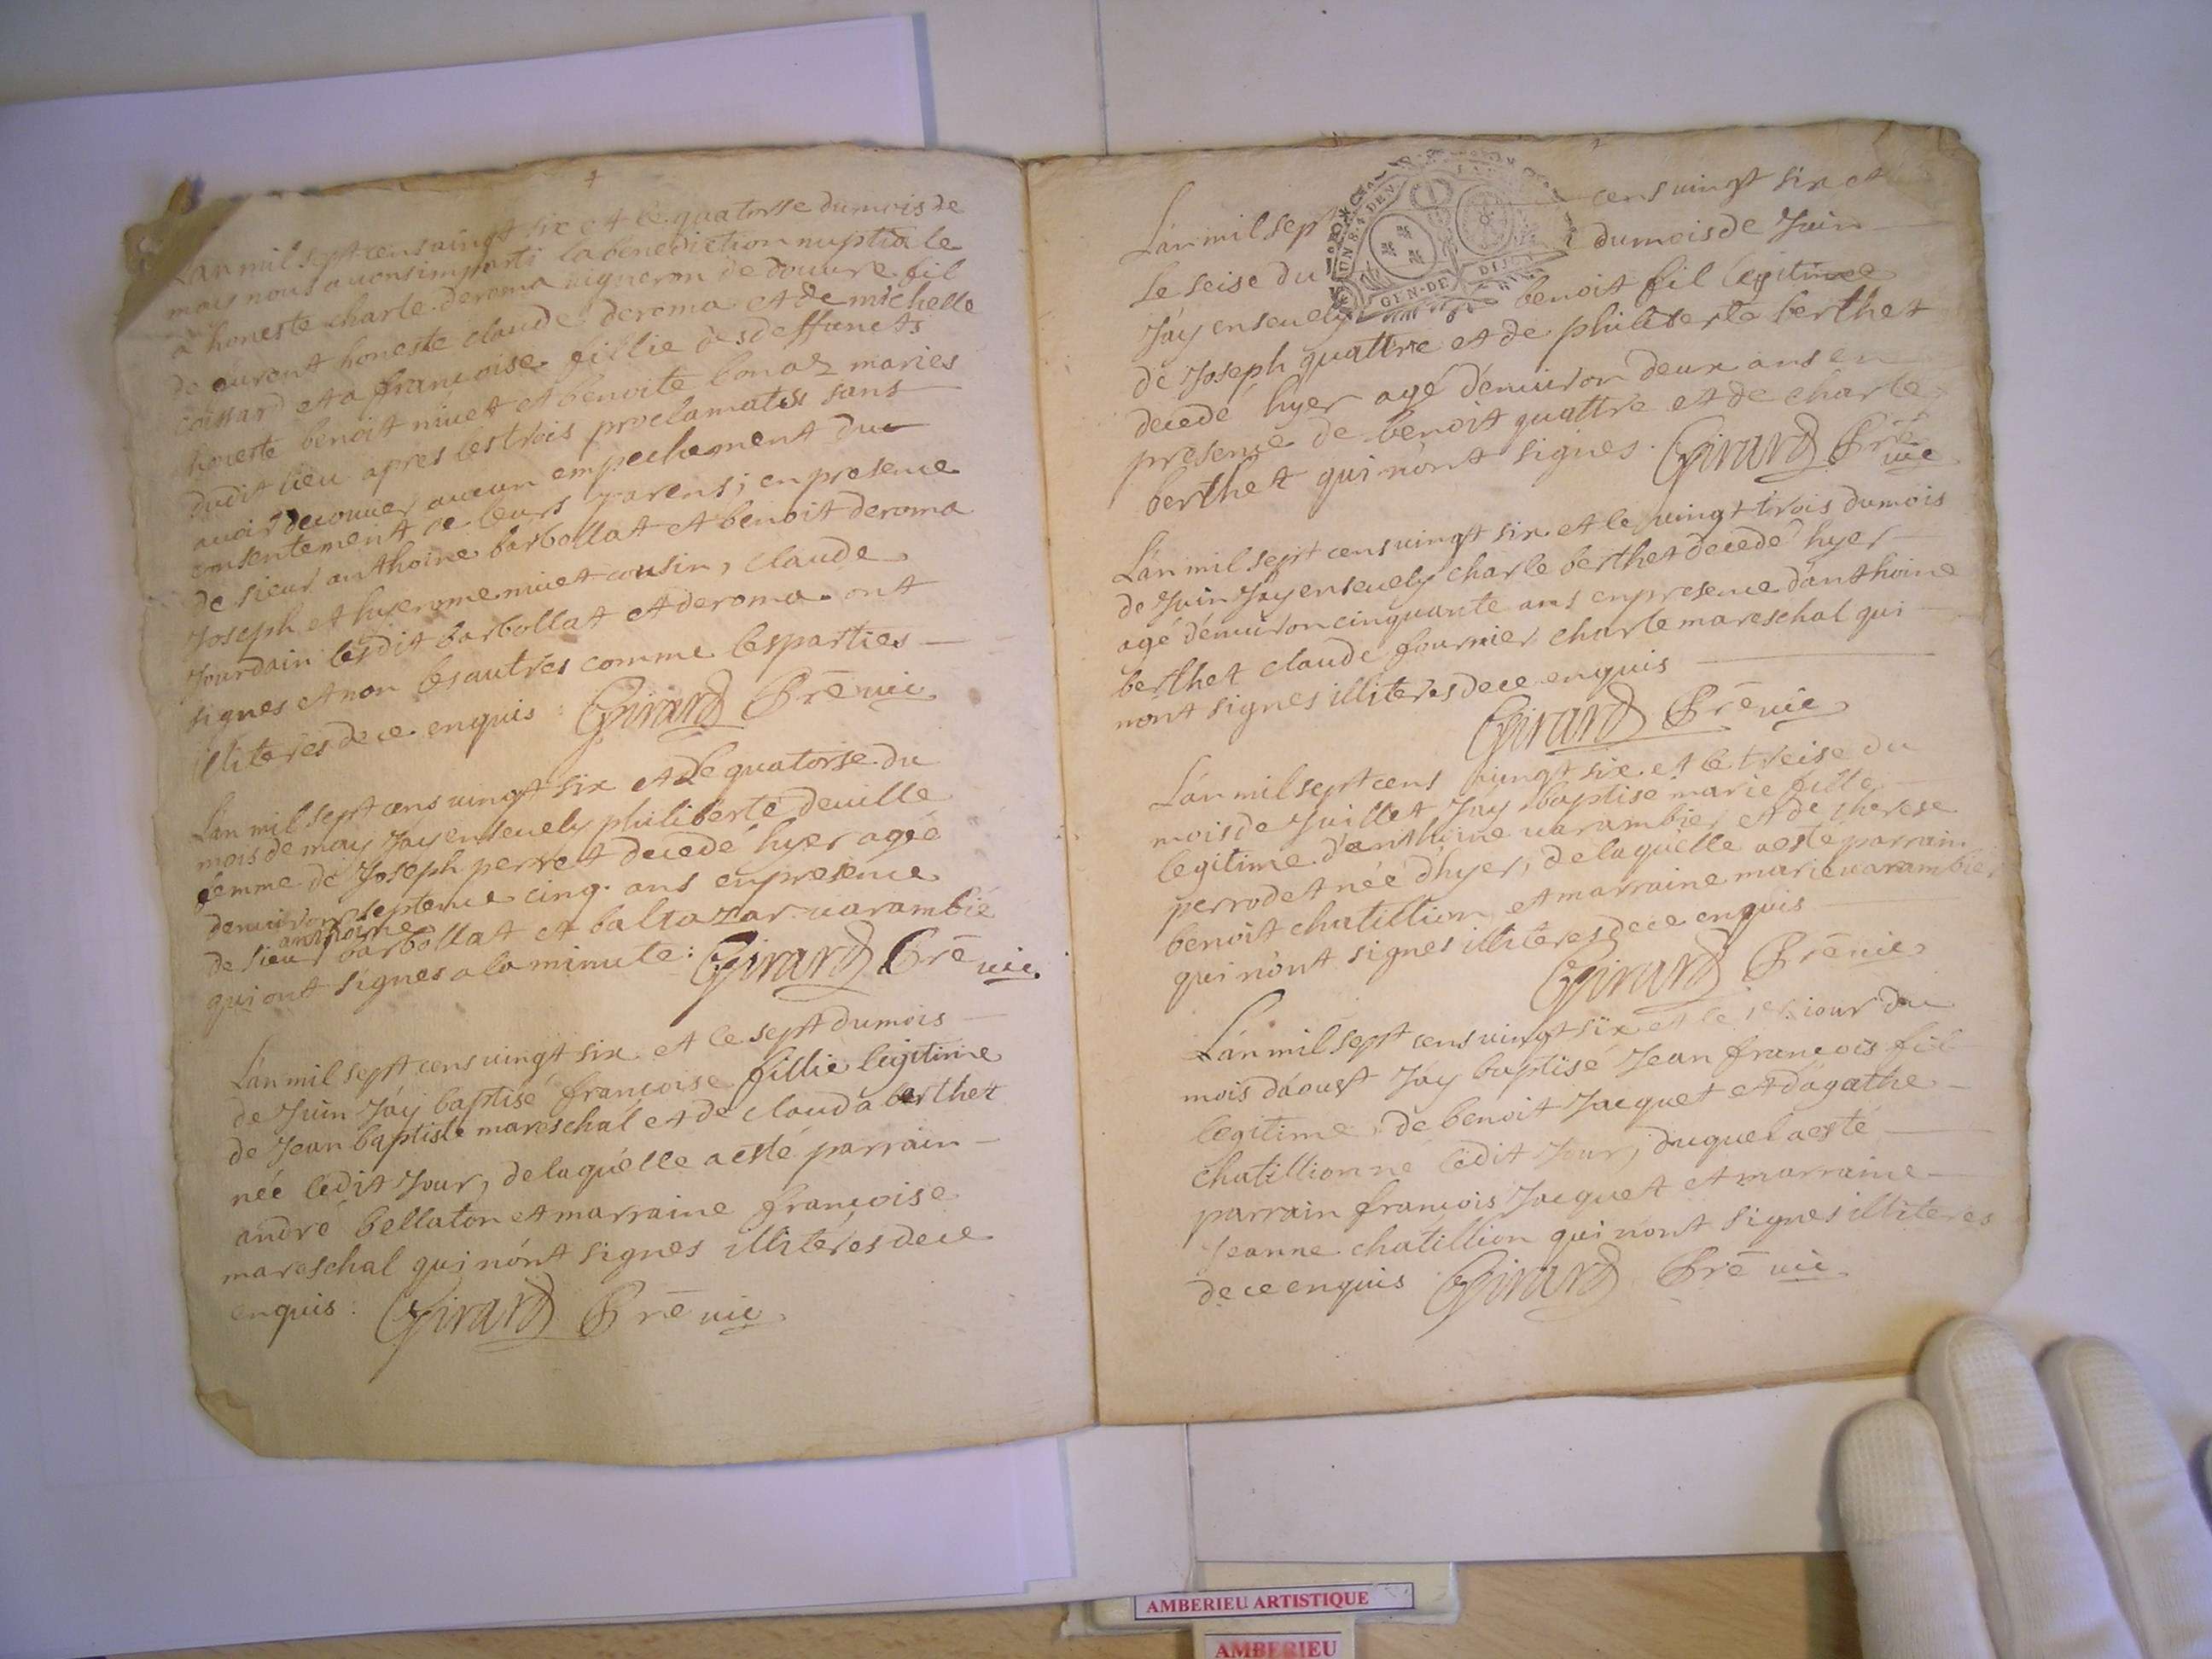 L'an mil sept cens vingt six et le quatorse du mois de
may nous avons imparti la benediction nuptiale
a honeste charle deroma vigneron de douvre fil
de avront honeste claude deroma et de michelle
coissard et a françoise fillie des deffuncts
honeste benoit nivet et benoite bonaz maries
dudit lieu apres les trois proclamates sans
avoir decouver aucun empechement du
consentement de leurs parens; en presence
de sieur anthoine barbollat et benoit deroma
Joseph et hyerome nivet cousin, claude
Jourdain lesdit barbollat et deroma ont
signes et non les autres comme les parties
illiteres de ce enquis : Girard Prē vic
L'an mil sept cens vingt six et Le quatorse du
mois de may Jay ensevely philiberte deville
femme de Joseph perret decedé hyer agée
denviron septente cinq ans en presence
anthoine
de sieur barbollat et baltazar varambié
qui ont signes a la minute : Girard Prē vic
L'an mil sept cens vingt six et le sept du mois
de Juin Jáy baptisé françoise fillie legitime
de Jean baptiste mareschal et de clauda berthet
née ledit Jour, de laquélle a esté parrain
andré bellaton et marraine françoise
mareschal qui nónt signes illitéres de ce
enquis : Girard Prē vic
L'an mil sept cens vingt six et
Le seise du du mois de Juin
Jáy ensevely benoit fil legitime
de Joseph quattre et de philiberte berthet
decedé hyer agé d'environ deux ans en
presense de benoit quattre et de charle
berthet qui nónt signes. Girard Prē vic
L'an mil sept cens vingt six et le vingt trois du mois
de Juin Jay ensevely charle berthet decedé hyer
agé d'environ cinquante ans en presence d'anthoine
berthet claude fournier charle mareschal qui
nónt signes illiteres de ce enquis
Girard Prē vic
L'an mil sept cens vingt six et le treise du
mois de Juillet Jay baptisé marie fille
legitime d'anthoine varambier et de therese
perrodet née d'hyer, de laquélle a esté parrain
benoit chatillion et marraine marie varambier
qui nónt signes illiteres de ce enquis
Girard Prē vic
L'an mil sept cens vingt six et le 1er jour du
mois dáoust Jáy baptisé Jean françois fil
legitime de benoit Jacquet et dágathe
chatillion né ledit Jour, duquel a esté
parrain françois Jacquet et marraine
Jeanne chatillion qui nónt signes illiteres
de ce enquis Girard Prē vic
GEN·DE DIJON
AMBERIEU ARTISTIQUE
AMBERIEU